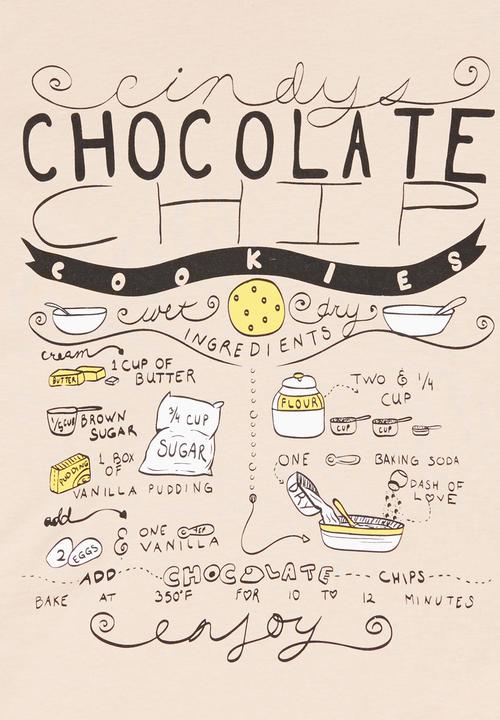 cindys
CHOCOLATE
CHIP
COOKIES
wet dry
INGREDIENTS
cream
BUTTER 1 CUP OF
BUTTER
CUP BROWN
SUGAR
3/4 CUP
SUGAR
PUDDING 1 BOX
OF
VANILLA PUDDING
add
2 EGGS & ONE TSP
VANILLA
FLOUR
TWO & 1/4
CUP
CUP CUP
ONE BAKING SODA
DRY
DASH OF
LOVE
ADD CHOCOLATE CHIPS
BAKE AT 350°F FOR 10 TO 12 MINUTES
enjoy